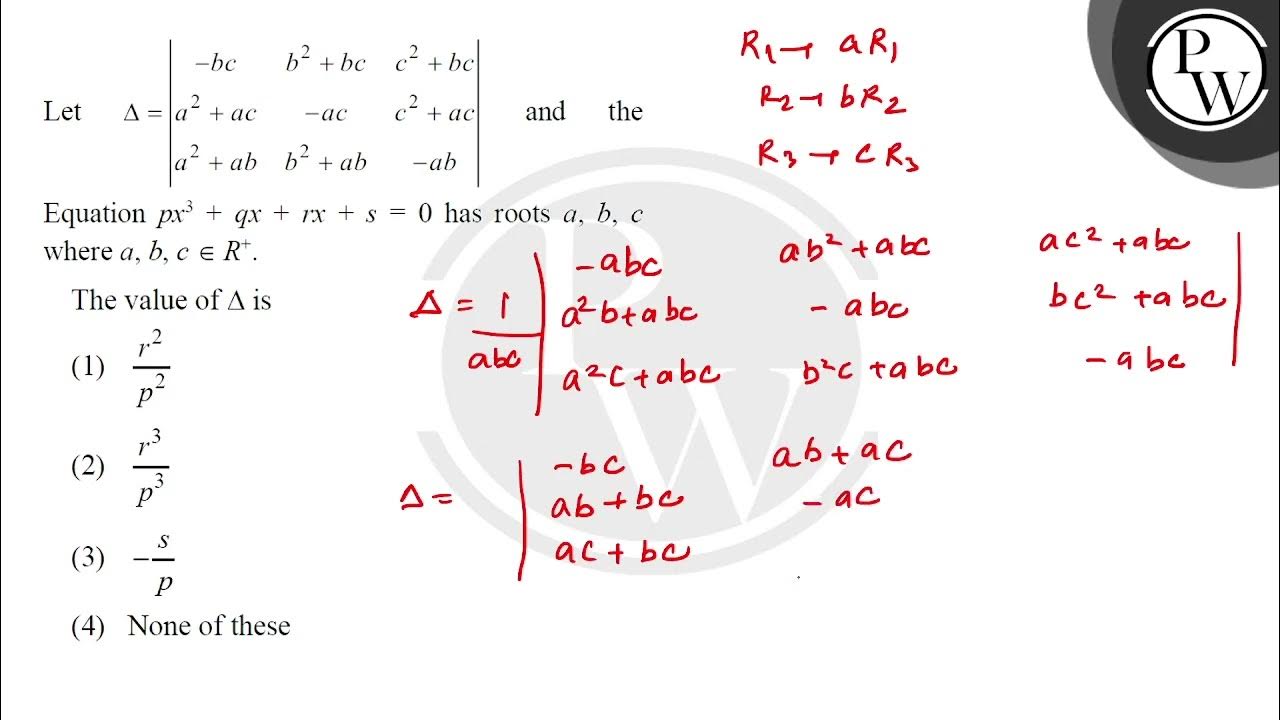 Let Δ = | −bc b² + bc c² + bc |
| a² + ac −ac c² + ac | and the
| a² + ab b² + ab −ab |
Equation px³ + qx + rx + s = 0 has roots a, b, c
where a, b, c ∈ R⁺.
The value of Δ is
(1) r²/p²
(2) r³/p³
(3) −s/p
(4) None of these
R₁ → aR₁
R₂ → bR₂
R₃ → cR₃
Δ = 1/abc | −abc ab² + abc ac² + abc |
| a²b + abc − abc bc² + abc |
| a²c + abc b²c + abc − abc |
Δ = | −bc ab + ac
| ab + bc − ac
| ac + bc
P
W
PW